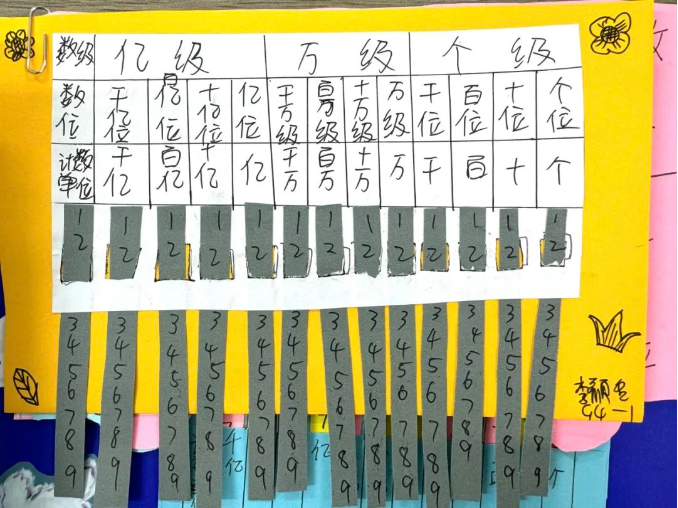 数级 亿级 万级 个级
数位 千亿位 百亿位 十亿位 亿位 千万级 百万级 十万级 万级 千位 百位 十位 个位
计数单位 千亿 百亿 十亿 亿 千万 百万 十万 万 千 百 十 个
1 1 1 1 1 1 1 1 1 1 1 1 1
2 2 2 2 2 2 2 2 2 2 2 2 2
3 3 3 3 3 3 3 3 3 3 3 3 3
4 4 4 4 4 4 4 4 4 4 4 4 4
5 5 5 5 5 5 5 5 5 5 5 5 5
6 6 6 6 6 6 6 6 6 6 6 6 6
7 7 7 7 7 7 7 7 7 7 7 7
8 8 8 8 8 8 8 8 8 8 8 8
9 9 9 9 9 9 9 9 9 9 9 9
G4-1
千亿 亿 个